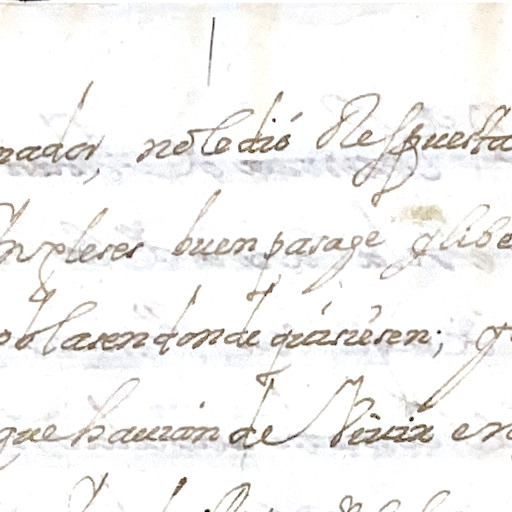 nador, nõ le dió Respuesta
Ingleses buen pasage q libe
poblasen donde quisiesen; q
que hauian de Viuir en